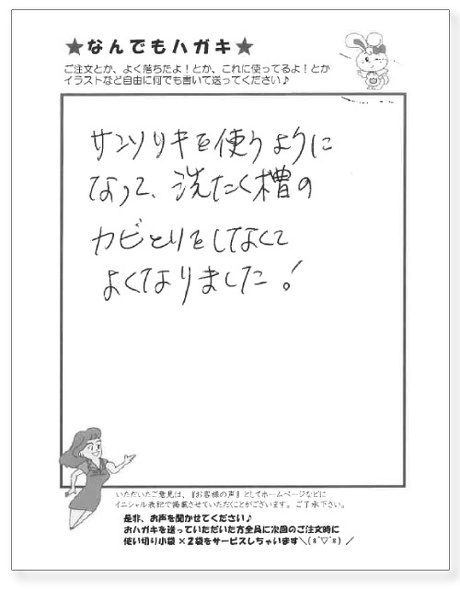 ★なんでもハガキ★
ご注文とか、よく落ちたよ！とか、これに使ってるよ！とか
イラストなど自由に何でも書いて送ってください♪
サンソリキを使うように
なって、洗たく槽の
カビとりをしなくて
よくなりました！
いただいたご意見は、『お客様の声』としてホームページなどに
イニシャル表記で掲載させていただくことがございます。ご了承下さい。
是非、お声を聞かせてください♪
おハガキを送っていただいた方全員に次回のご注文時に
使い切り小袋×２袋をサービスしちゃいます＼(*ˊ▽ˋ*)／